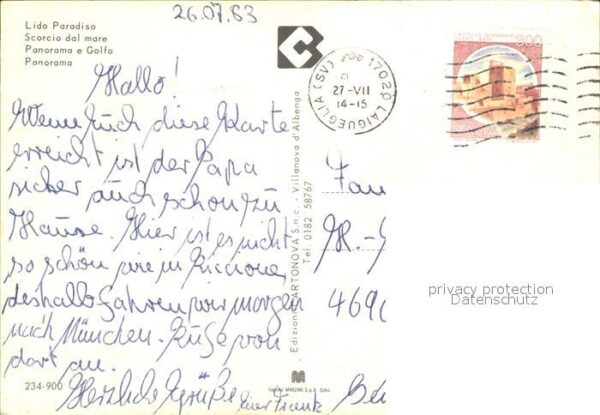 26.07.83
Lido Paradiso
Scorcio dal mare
Panorama e Golfo
Panorama
Hallo!
Wenn Euch diese Karte
erreicht ist der Papa
sicher auch schon zu
Hause. Hier ist es nicht
so schön wie in Riccione,
deshalb fahren wir morgen
nach München. Rufe von
dort an.
Herzliche Grüße
234-900
Edizioni CARTONOVA S.n.c. - Villanova d'Albenga
Tel. 0182 58767
17020 LAIGUEGLIA (SV)
27-VII
14-15
300
Fam
469
privacy protection
Datenschutz